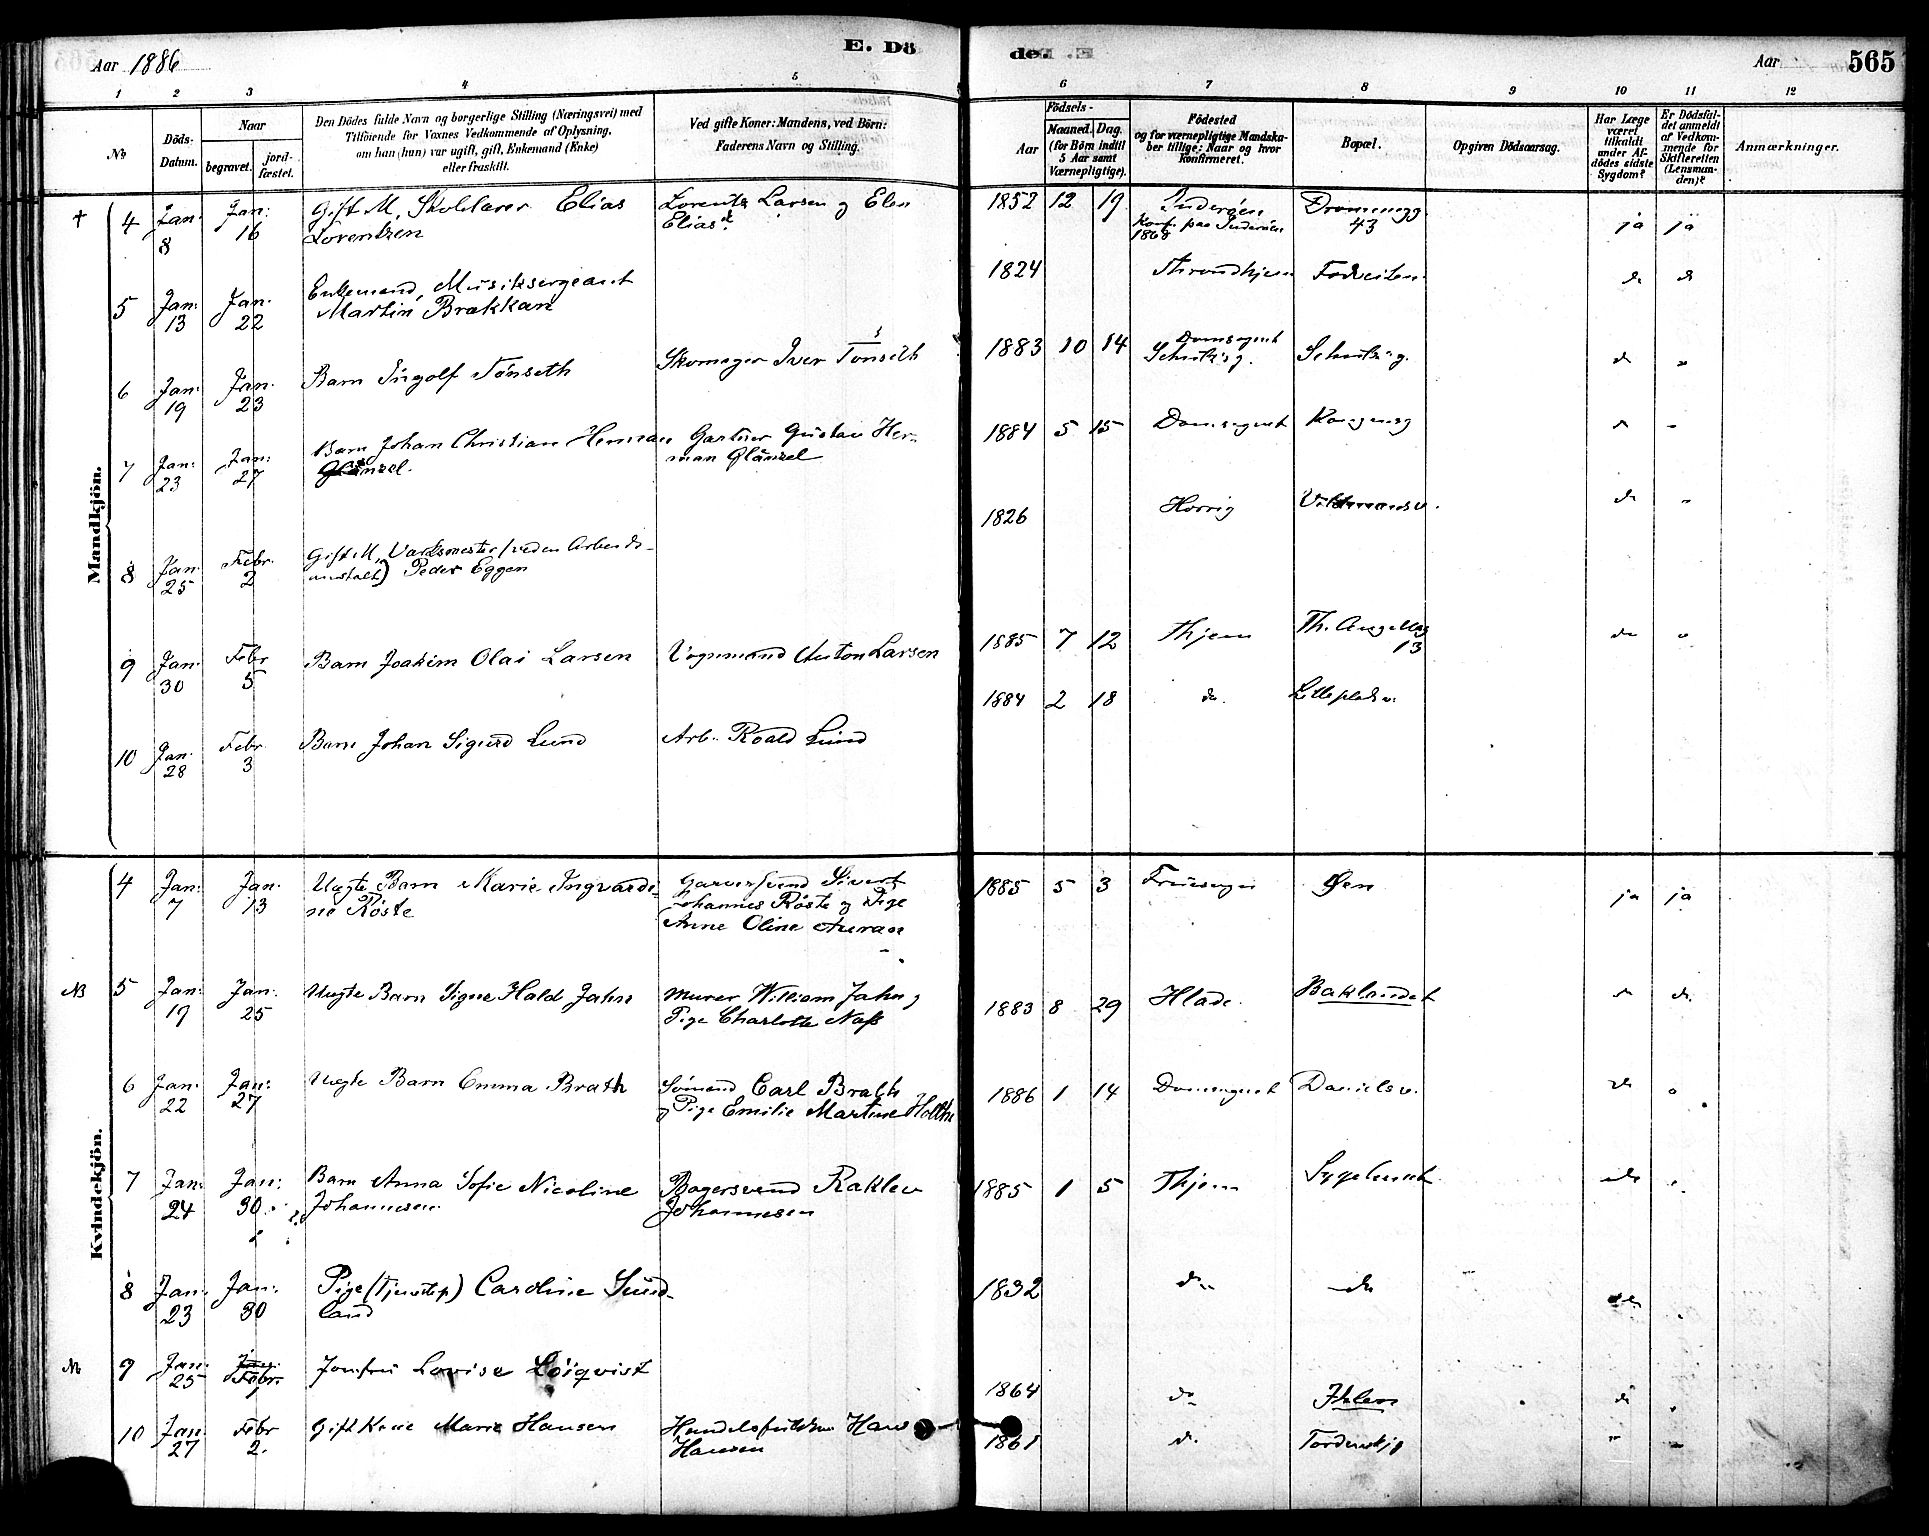 Aar 1886
E. Dö
de. E.
Aar 565
1 2 3 4 5 6 7 8 9 10 11 12
No
Döds-
Datum.
Naar
begravet.
jord-
fæstet.
Den Dödes fulde Navn og borgerlige Stilling (Næringsvei) med
Tilföiende for Voxnes Vedkommende af Oplysning,
om han (hun) var ugift, gift, Enkemand (Enke)
eller fraskilt.
Ved gifte Koner: Mandens, ved Börn:
Faderens Navn og Stilling.
Födsels-
Aar
Maaned. Dag.
(for Börn indtil
5 Aar samt
Værnepligtige).
Födested
og for værnepligtige Mandska-
ber tillige: Naar og hvor
Konfirmeret.
Bopæl.
Opgiven Dödsaarsag.
Har Læge
været
tilkaldt
under Af-
dödes sidste
Sygdom?
Er Dödsfal-
det anmeldt
af Vedkom-
mende for
Skifteretten
(Lensman-
den)?
Anmærkninger.
Mandkjön.
4 Jan. 8 Jan: 16 Gift M, Skolelærer Elias
Lorentzen
Lorents Larsen og Elen
Elias
1852 12 19 Inderøen
Konf. paa Inderøen
1868
43 ja ja
5 Jan: 13 Jan. 22 Enkemand, Musiksergeant
Martin Brækkan
1824 Throndhjem do do
6 Jan: 19 Jan. 23 Barn Ingolf Tönseth
Skomager Iver Tönseth
1883 10 14 Domsognet
do "
7 Jan: 23 Jan: 27 Barn Johan Christian Herman
Glänzel.
Gartner Gustav Her-
man Glänzel
1884 5 15 Domsognet "
8 Jan: 25 Febr. 2 Gift M, Værksmester (ved en Arbeids-
anstalt) Peder Eggen
1826 do "
9 Jan: 30 Febr 5 Barn Joakim Olai Larsen
Vognmand Anton Larsen
1885 7 12 Thjem Th. Angellsg
13 do "
10 Jan. 28 Febr. 3 Barn Johan Sigurd Lund
Arb. Roald Lund
1884 2 18 do.
Kvindekjön.
4 Jan. 7 Jan. 13 Uægte Barn Marie Ingvardi-
ne Röste
Garversvend Sivert
Johannes Röste og Pige
Anne Oline Auran
1885 5 3 Fruesogn Øen ja ja
NB 5 Jan: 19 Jan: 25 Uægte Barn Signe Hald Jahn
Murer William Jahn og
Pige Charlotte Næss
1883 8 29 Hlade. Baklandet do.
6 Jan: 22 Jan: 27 Uægte Barn Emma Brath
Sömand Carl Brath
og Pige Emilie Martine
1886 1 14 Domsognet Danielsv. do "
7 Jan: 24 Jan: 30 Barn Anna Sofie Nicoline
Johannesen
Bagersvend Raklev
Johannesen
1885 1 5 Thjem Sygehuset do "
8 Jan. 23 Jan: 30 Pige (Tjenestep) Caroline Sund-
land
1832 do do do
9 Jan: 25 Febr. 1 Jomfru Lovise Löiqvist
1864 do Ihlen do
10 Jan: 27 Febr 2. Gift Kone Marie Hansen
Hans
Hansen
1861 do. Tordenskj "